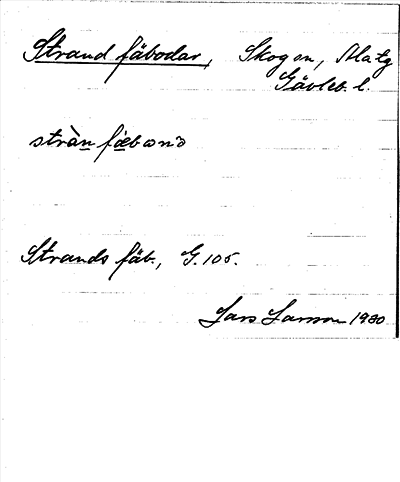 Strand fäbodar, Skogen, Alatg
Gävleb. l.
stràn fæbωnə
Strands fäb., G. 105.
Lars Larsson 1930